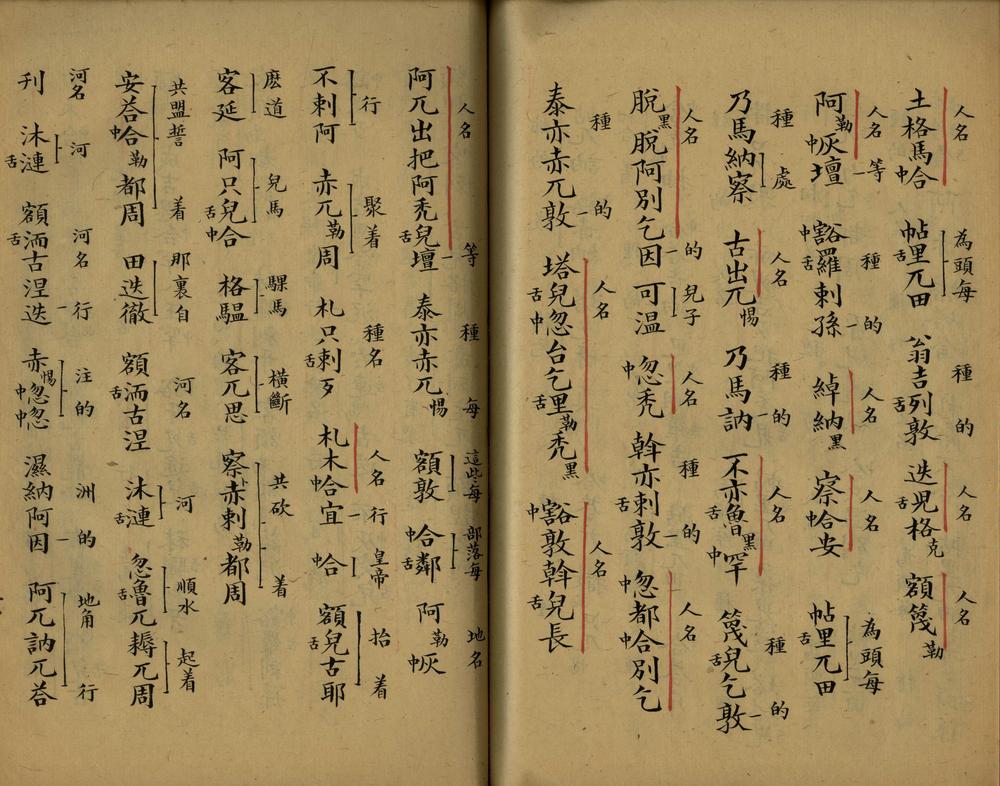 人名 為頭每 種的 人名 人名
土格馬中合 帖舌里兀田 翁吉舌列敦 迭舌児格克 額篾勒
人名 等 種 的 人名 人名 為頭每
阿勒中灰壇 中豁舌羅剌孫 綽納黑 察中合安 帖舌里兀田
種 處 人名 種 的 人名 種 的
乃馬納察 古出兀惕 乃馬訥 不亦舌魯黑中罕 篾舌兒乞敦
人名 的 兒子 人名 種 的 人名
脫黑脫阿別乞因 可溫 中忽禿 斡亦舌剌敦 中忽都中合別乞
種 的 人名 人名
泰亦赤兀敦 塔舌兒中忽台乞舌里勒禿黑 中豁敦斡舌兒長
人名 等 種 每 這些每 部落每 地名
阿兀出把阿禿舌兒壇 泰亦赤兀惕 額敦 中合舌鄰 阿勒中灰
行 聚着 種名 人名 行 皇帝 抬着
不剌阿 赤兀勒周 札只舌剌歹 札木中合宜 中合 額舌兒古耶
麽道 兒馬 騍馬 橫斷 共砍 着
客延 阿只舌兒中合 格驅 客兀思 察卜赤剌勒都周
共盟誓 着 那裏自 河名 河 順水 起着
安荅中合勒都周 田迭徹 額舌洏古涅 沐舌漣 忽舌魯兀耨兀周
河名 河 河名 行 注的 洲的 地角 行
刋 沐舌漣 額舌洏古涅迭 赤惕中忽中忽 濕納阿因 阿兀訥兀荅